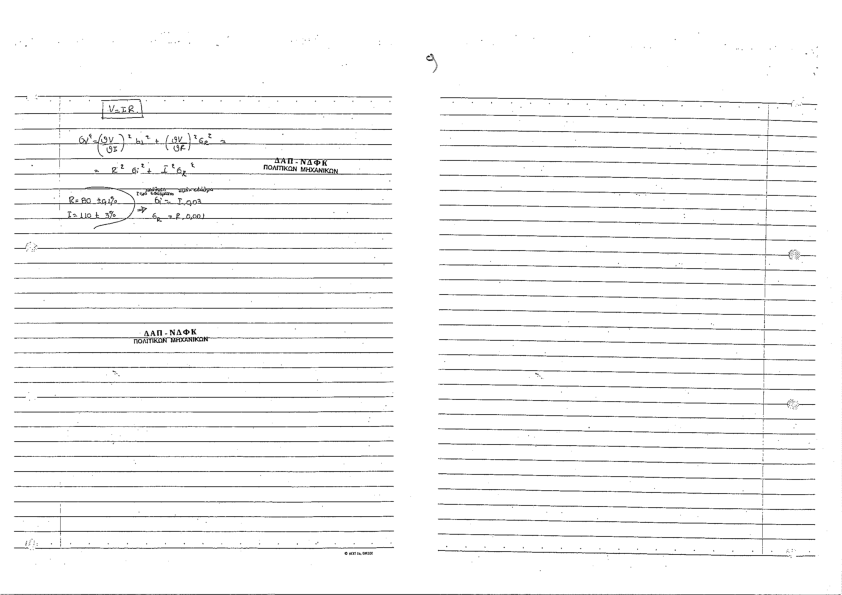 V=IR
σv² = (∂V/∂I)² σi² + (∂V/∂R)² σR² =
= R² σi² + I² σR²
ΔΑΠ - ΝΔΦΚ
ΠΟΛΙΤΙΚΩΝ ΜΗΧΑΝΙΚΩΝ
R = 80 ± 0,1%
σi = I · 0,03
I = 110 ± 3%
⇒ σR = R · 0,001
ΔΑΠ - ΝΔΦΚ
ΠΟΛΙΤΙΚΩΝ ΜΗΧΑΝΙΚΩΝ